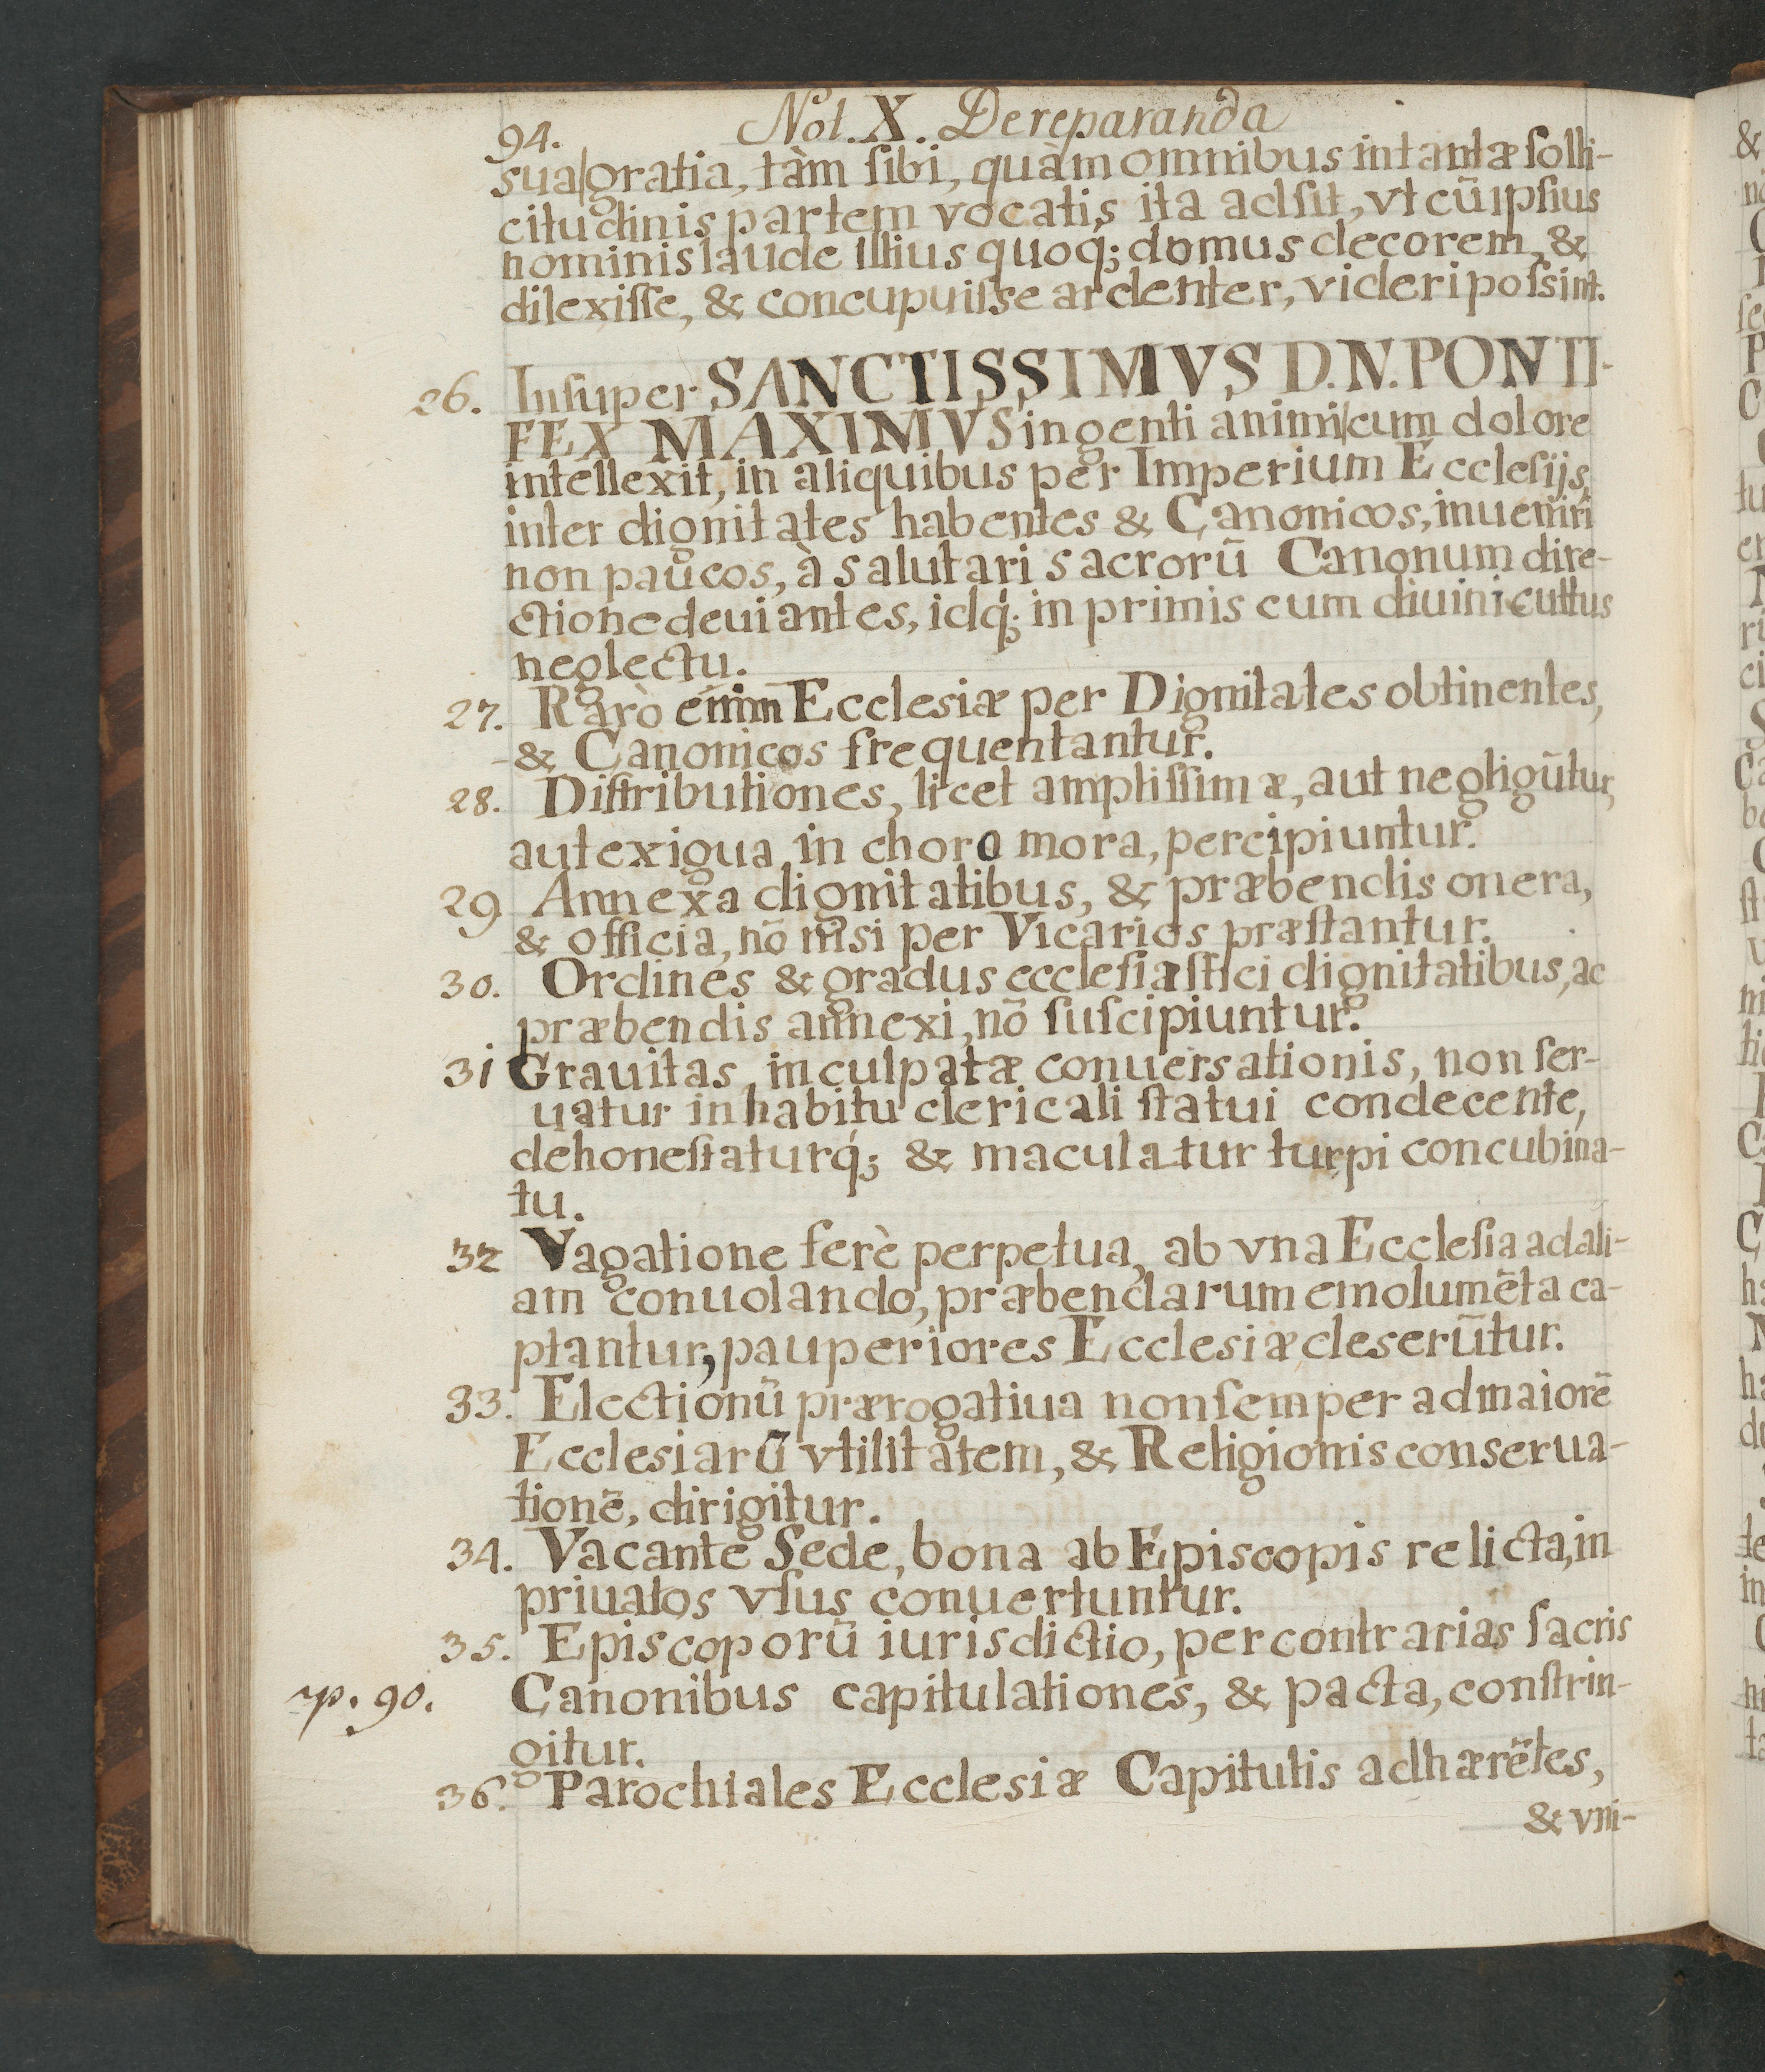 94. Not. X. De reparanda
sua|gratia, tàm ſibi, quàm omnibus in tantæ ſolli-
citudinis partem vocatis ita adſit, vt cū ipſius
nominis laude Illius quoq́; domus decorem, &
dilexiſſe, & concupuiſse ardenter, videri poſsint.
26. Inſuper SANCTISSIMVS D.N. PONTI-
FEX MAXIMVS ingenti animi|cum dolore
intellexit, in aliquibus per Imperium Eccleſijs,
inter dignitates habentes & Canonicos, inueniri
non paucos, à salutari sacrorū Canonum dire-
ctione deuiantes, idq́; in primis cum diuini cultus
neglectu.
27. Rarò enim Ecclesiæ per Dignitates obtinentes,
& Canonicos frequentantur.
28. Diſtributiones, licet ampliſſimæ, aut negligūtur,
aut exigua in choro mora, percipiuntur.
29 Annexa dignitatibus, & præbendis onera,
& officia, nō nisi per Vicarios præſtantur.
30. Ordines & gradus eccleſiaſtici dignitatibus, ac
præbendis annexi, nō ſuſcipiuntur.
31 Grauitas inculpatæ conuersationis, non ſer-
uatur in habitu clericali ſtatui condecente,
dehoneſtaturq́; & maculatur turpi concubina-
tu.
32 Vagatione ferè perpetua, ab vna Eccleſia ad ali-
am conuolando, præbendarum emolumēta ca-
ptantur, pauperiores Ecclesiæ deserūtur.
33. Electionū prærogatiua non ſemper ad maiorē
Ecclesiarū vtilitatem, & Religionis conserua-
tionē, dirigitur.
34. Vacante Sede, bona ab Episcopis relicta, in
priuatos vſus conuertuntur.
35. Episcoporū iurisdictio, per contrarias ſacris
p. 90. Canonibus capitulationes, & pacta, conſtrin-
gitur.
36. Parochiales Ecclesiæ Capitulis adhærētes,
& vni-